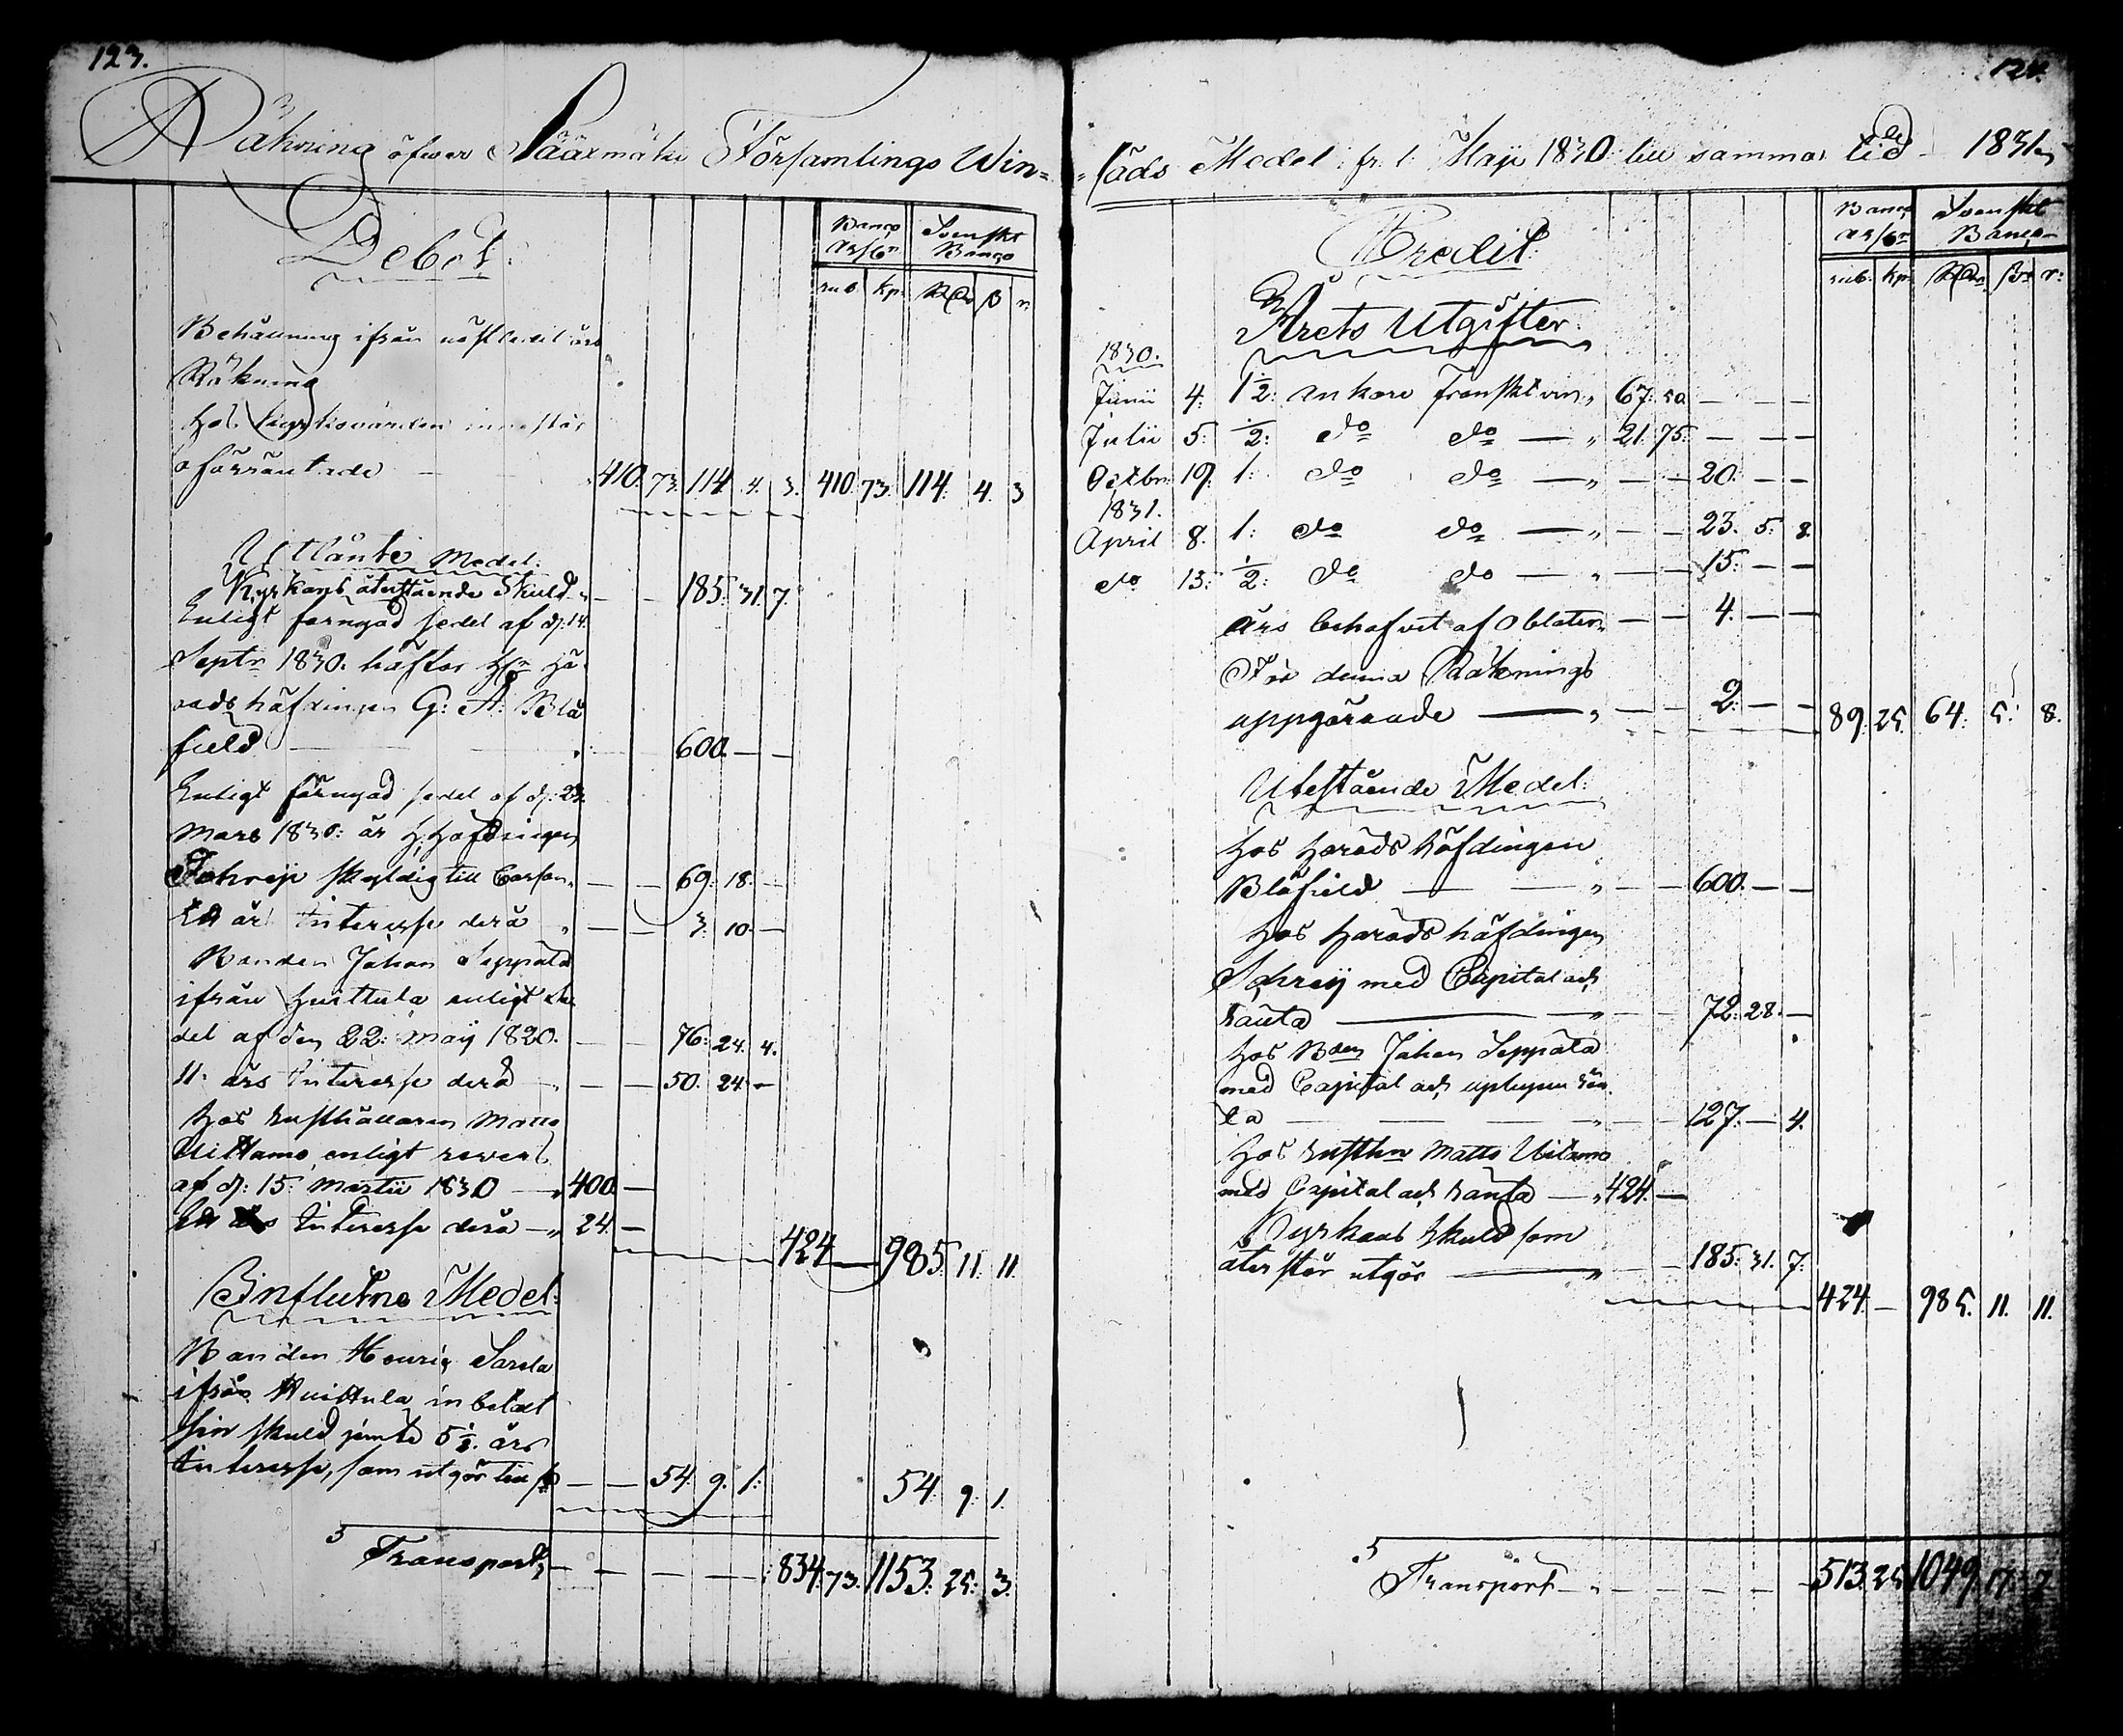 123.
Räkning öfwer Sääxmäki Församlings Win=
Debet:
Banco Assign Svenskt Banco
rub. kp. RDr ß r.
Behållning ifrån nästledit års
Räkning
Hos Kyrkovärden innestår
oförräntade 410. 73. 114. 4. 3. 410. 73. 114. 4. 3
Utlänte Medel:
Kyrkans återstående Skuld — — 185. 31. 7.
Enligt förnyad sedel af d: 14.
Septr 1830. häftar Hr Hä-
radshäfdingen G: A: Blå
field — — 600. — —
Enligt förnyad sedel af d: 23.
Mars 1830: är H. Häfdingen
Sohrej skyldig till Cassan — — 69. 18. —
Ett års Interesse derå — — 3. 10. —
Bonden Johan Seppälä
ifrån Huittula enligt se-
del af den 22: Maij 1820. — — 76. 24. 4.
11. års Interesse derå — — — 50. 24. —
Hos Rusthållaren Matts
Uittamo enligt revers
af d: 15. Martii 1830 — 400. —
Ett års Interesse derå — 24. —
424. — 985. 11. 11.
Influtne Medel:
Bonden Henric Sarela
ifrån Huittula inbetalt
sin skuld jämte 5½ års
Interesse, som utgör till — — 54. 9. 1. 54. 9. 1.
Transport — — — — — 834. 73. 1153. 25. 3.
124.
=säds Medel fr. 1. Maji 1830 till samma tid 1831
Credit:
Banco Assgn Svenskt Banco
rub. kp. RDr ßr r:
Årets Utgifter:
1830.
Junii 4. 1½: ankare Franskt vin 67. 50. — — —
Julii 5: ½: do do — 21. 75. — — —
Octbr 19. 1: do do — — — 20. — —
1831.
April 8. 1: do do — — — 23. 5. 8.
do 13: ½: do do — — — 15. — —
Års behofvet af Oblater — — 4. — —
För denna Räknings
uppgörande — — — 2. — — 89. 25. 64. 5. 8.
Utestående Medel:
Hos Härads höfdingen
Blåfield — — — — 600. — —
Hos Härads häfdingen
Sohrej med Capital och
ränta — — — 72. 28. —
Hos Bden Johan Seppälä
med Capital och uplupen rän-
ta — — — — — 127. — 4.
Hos Rusthn Matts Uitamo
med Capital och ränta — 424. —
Kyrkans Skuld som
återstår utgör — — 185. 31. 7.
424. — 985. 11. 11.
Transport — — — — — 513. 25. 1049. 17. 7